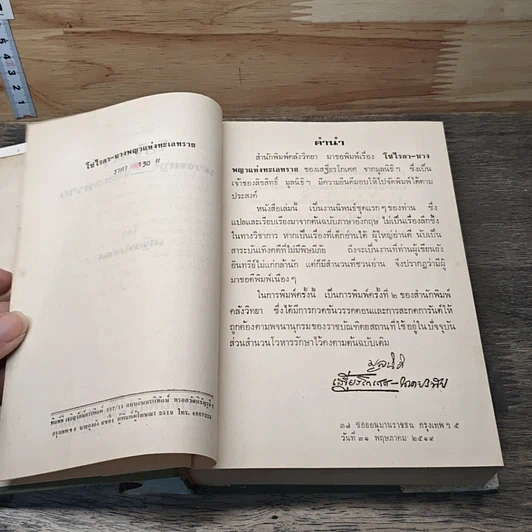 โซไรดา-นางพญาแห่งทะเลทราย
ราคา 130 ฿
คำนำ
สำนักพิมพ์คลังวิทยา มาขอพิมพ์เรื่อง โซไรดา-นาง
พญาแห่งทะเลทราย ของเสฐียรโกเศศ จากมูลนิธิฯ ซึ่งเป็น
เจ้าของลิขสิทธิ์ มูลนิธิฯ มีความยินดีมอบให้ไปจัดพิมพ์ได้ตาม
ประสงค์
หนังสือเล่มนี้ เป็นงานนิพนธ์ชุดแรกๆ ของท่าน ซึ่ง
แปลและเรียบเรียงมาจากต้นฉบับภาษาอังกฤษ ไม่เป็นเรื่องลึกซึ้ง
ในทางวิชาการ หากเป็นเรื่องที่เด็กอ่านได้ ผู้ใหญ่อ่านดี นับเป็น
สาระบันเทิงคดีที่ไม่มีพิษมีภัย ถึงจะเป็นงานที่ท่านผู้เขียนยัง
อินทรีย์ไม่แก่กล้านัก แต่ก็มีสำนวนที่ชวนอ่าน จึงปรากฏว่ามีผู้
มาขอตีพิมพ์เนืองๆ
ในการพิมพ์ครั้งนี้ เป็นการพิมพ์ครั้งที่ ๒ ของสำนักพิมพ์
คลังวิทยา ซึ่งได้มีการกวดขันวรรคตอนและการสะกดการันต์ให้
ถูกต้องตามพจนานุกรมของราชบัณฑิตยสถานที่ใช้อยู่ในปัจจุบัน
ส่วนสำนวนโวหารรักษาไว้คงตามต้นฉบับเดิม
มูลนิธิ
เสฐียรโกเศศ-นาคะประทีป
๓๗ ซอยอนุมานราชธน กรุงเทพฯ ๕
วันที่ ๓๑ พฤษภาคม ๒๕๑๙